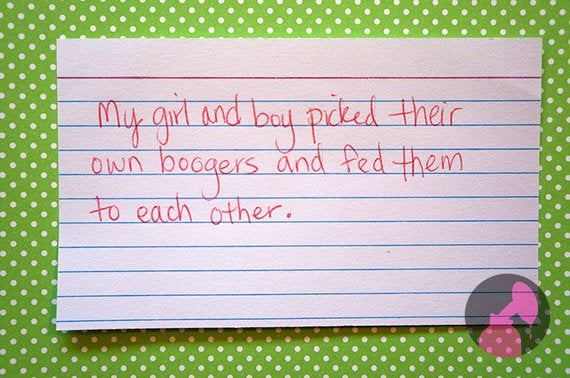 My girl and boy picked their
own boogers and fed them
to each other.